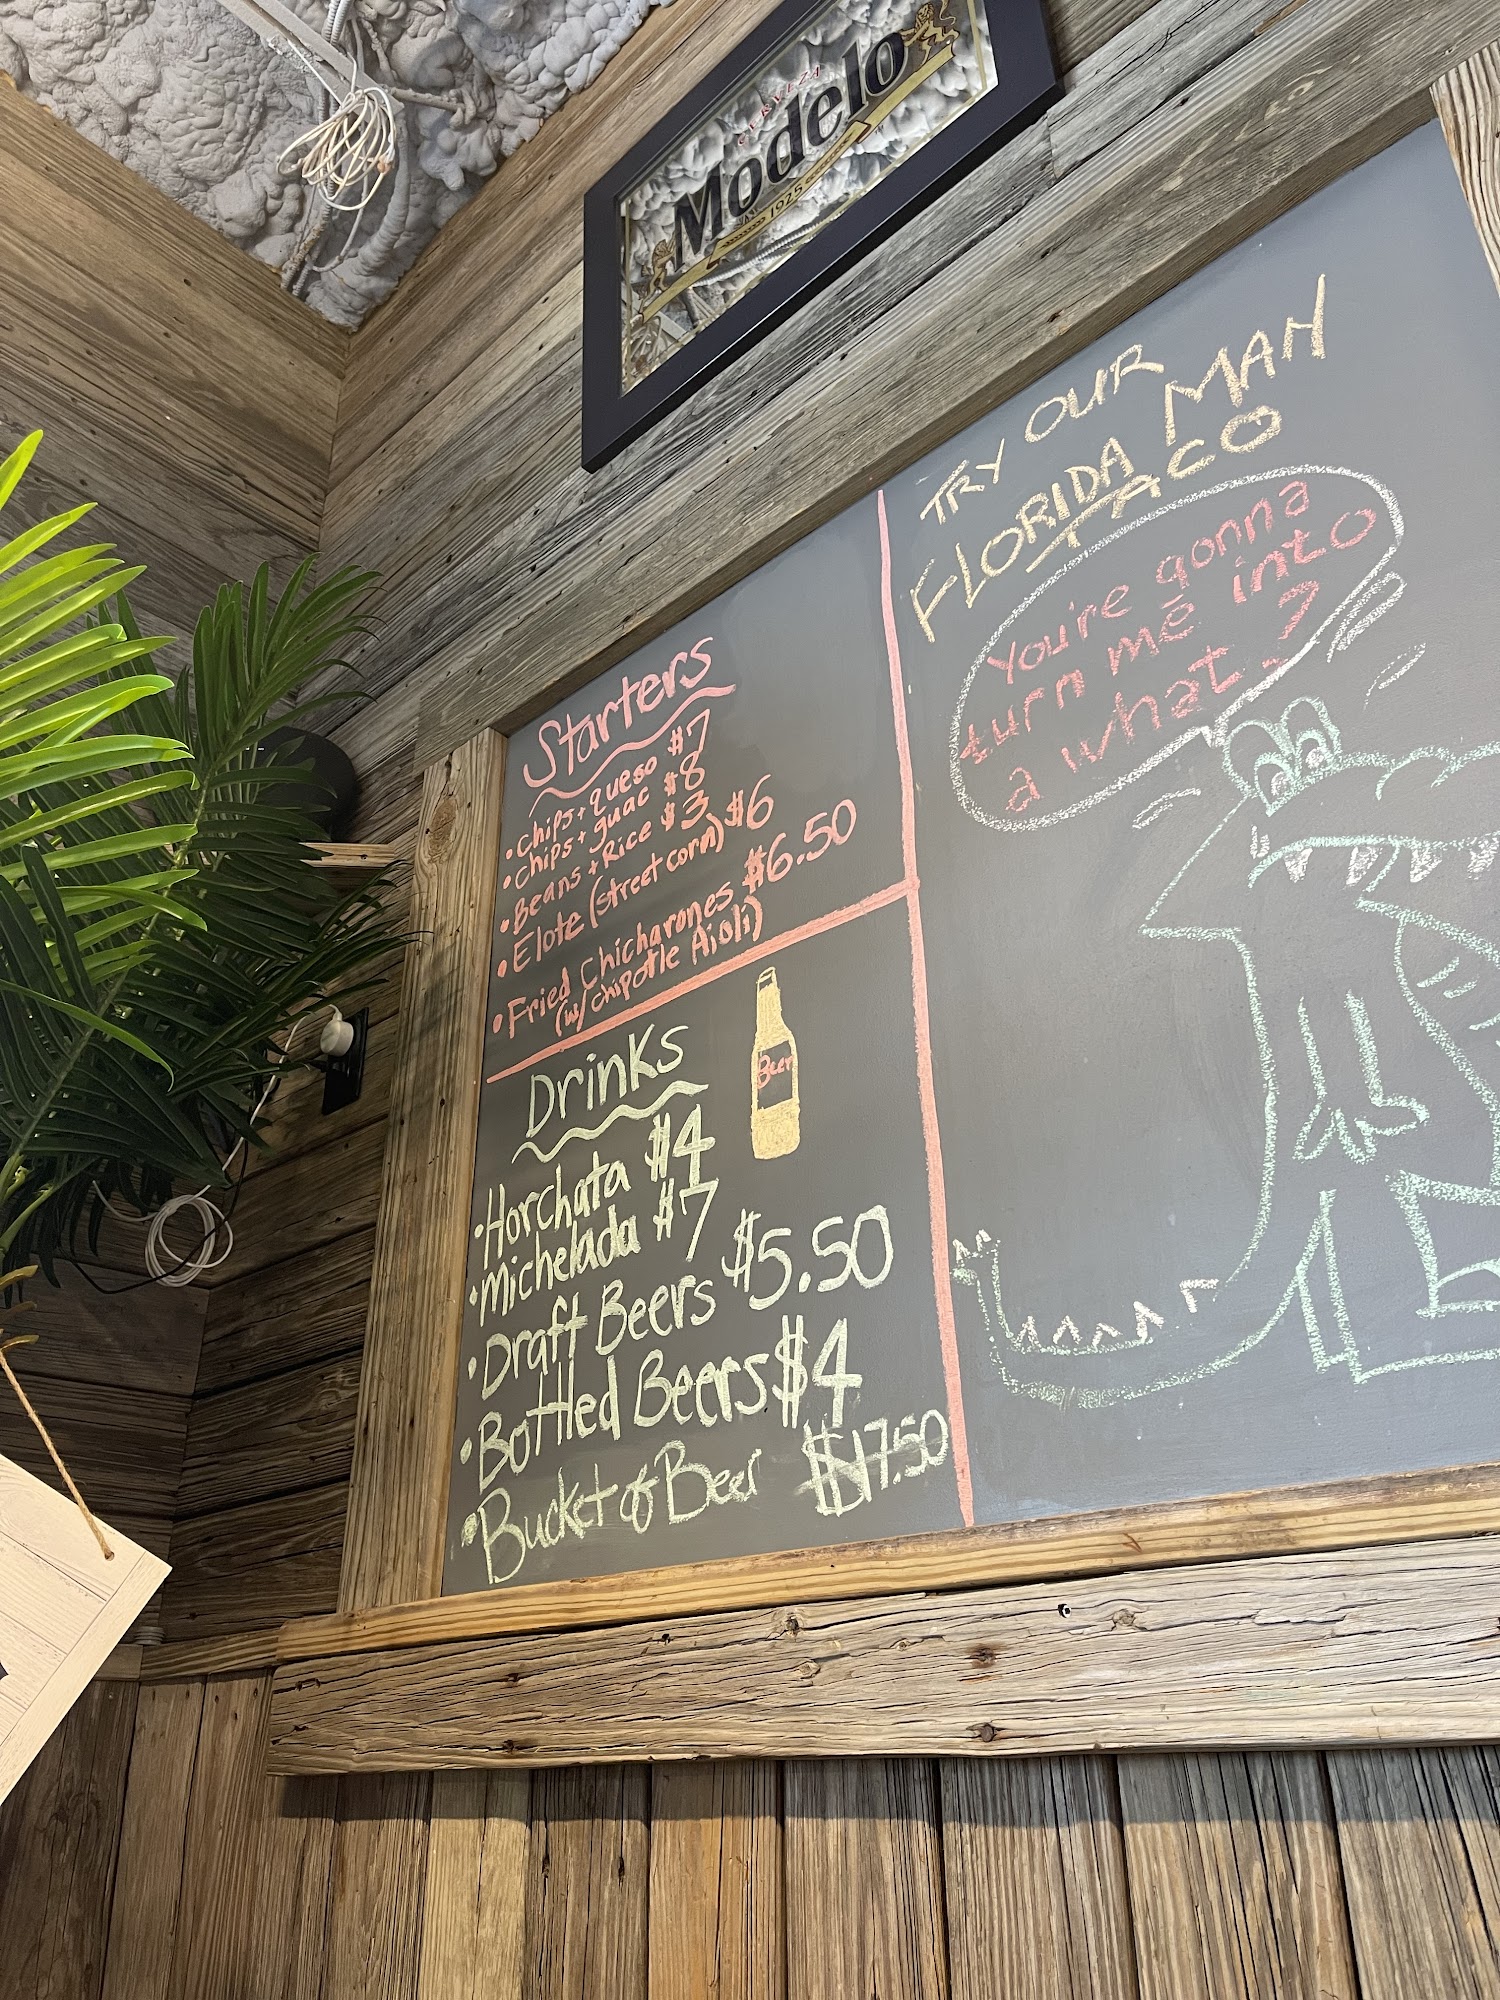 CERVEZA
Modelo
1925
Starters
• Chips + queso $7
• Chips + guac $8
• Beans + Rice $3
• Elote (street corn) $6
• Fried Chicharones $6.50
(w/ chipotle Aioli)
Drinks
Beer
• Horchata $4
• Michelada $7
• Draft Beers $5.50
• Bottled Beers $4
• Bucket of Beer $17.50
TRY OUR
FLORIDA MAN
TACO
You're gonna
turn me into
a what?